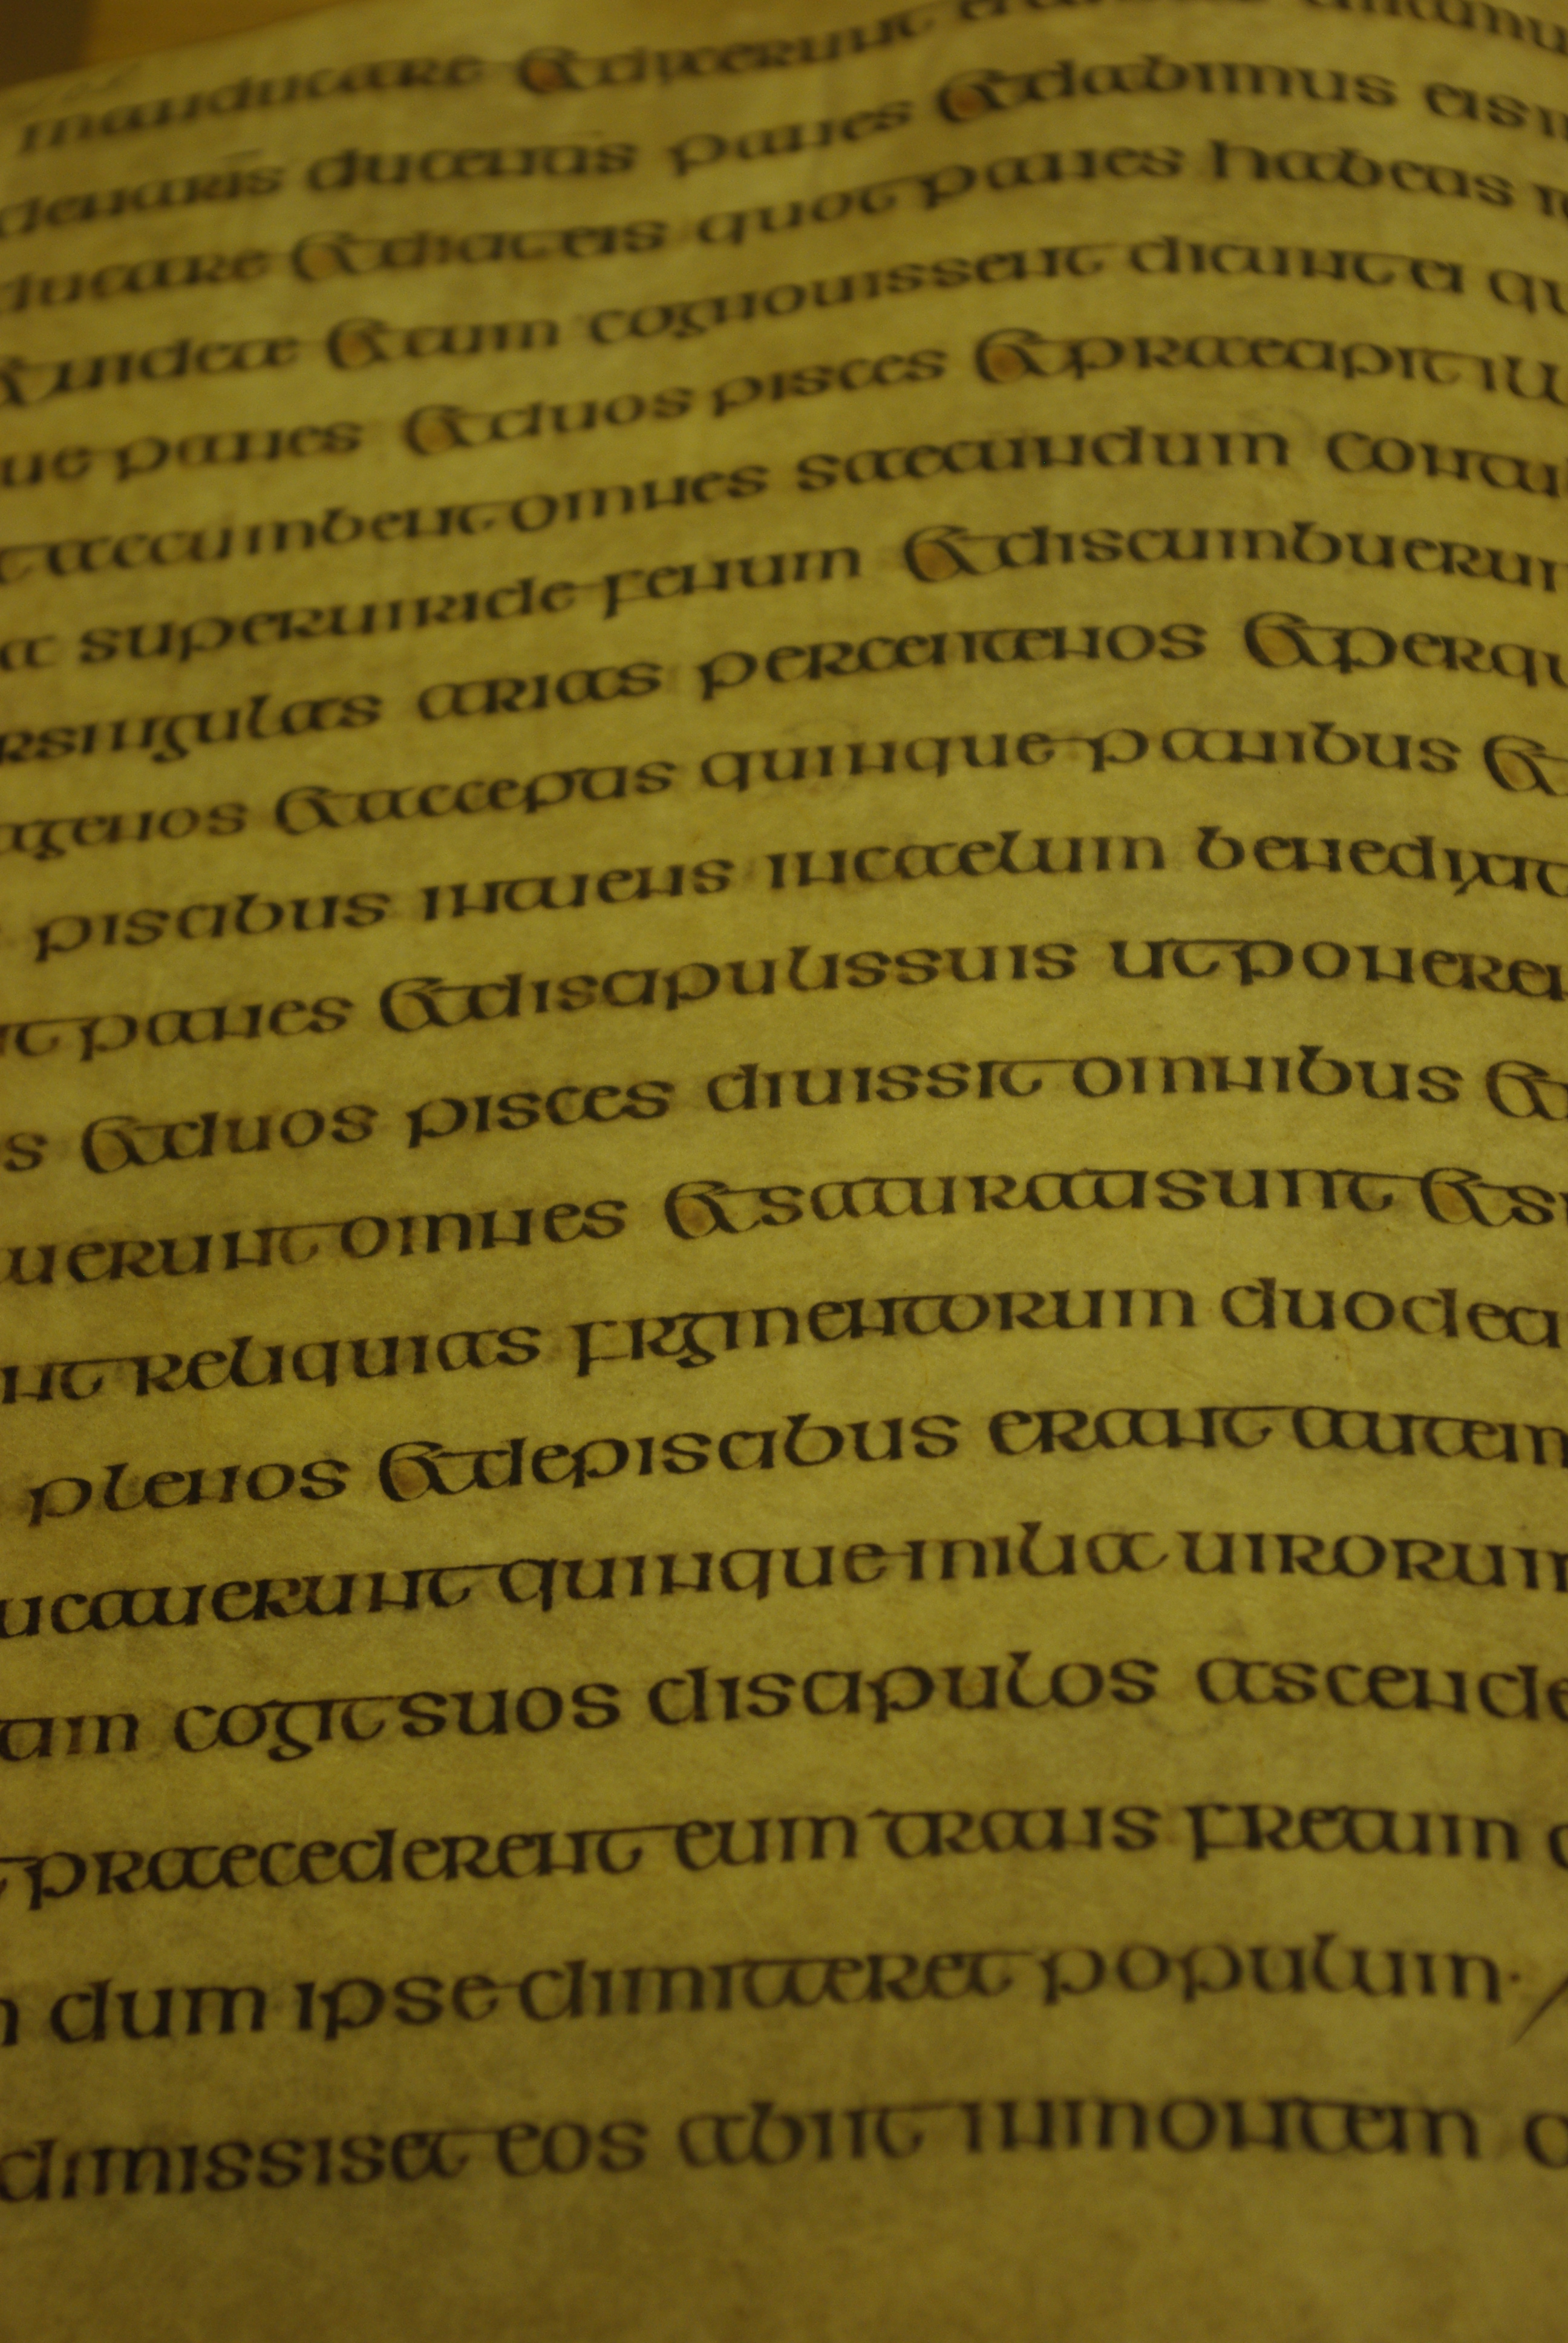 manducare & dixerunt
denaris ducentis panes & dabimus eis m
ducare & dicit eis quot panes habetis
& uidete & cum cognouissent dicunt ei qu
ue panes & duos pisces & praecipit ill
t accumbent omnes saecundum contu
a super uiride fenum & discumbuerun
r singulas partes per centenos & per qu
agenos & acceptis quinque panibus &
piscibus intuens in caelum benedixit
it panes & discipulis suis ut ponere
s & duos pisces diuissit omnibus &
uerunt omnes & saturati sunt & s
nt reliquias frgmentorum duodeci
plenos & de piscibus erant autem
ucauerunt quinque milia uirorum
am cogit suos discipulos ascende
praecederent eum trans fretum
dum ipse dimitteret populum
dimississet eos abiit in montem o